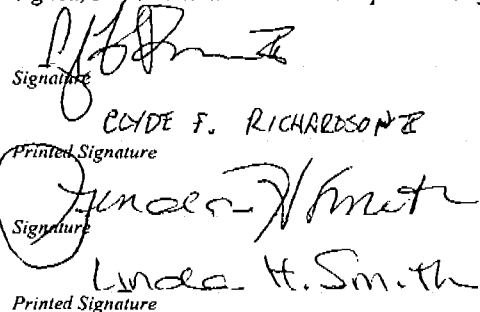 Signature
CLYDE F. RICHARDSON II
Printed Signature
Linda H Smith
Signature
Linda H. Smith
Printed Signature